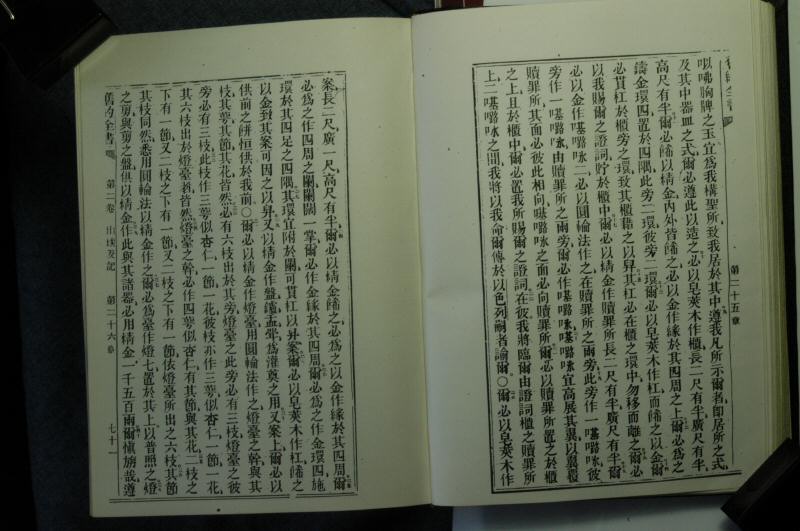 以咈胸牌之玉宜爲我構聖所致我居於其中遵我凡所示爾者即居所之式
及其中器皿之式爾必遵此以造之必以皂莢木作櫃長二尺有半廣尺有半
高尺有半爾必餙以精金內外皆餙之必以金作緣於其四周之上爾必爲之
鑄金環四置於四隅此旁二環彼旁二環爾必以皂莢木作杠而餙之以金爾
必貫杠於櫃旁之環致其櫃藉之以舁其杠必在櫃之環中勿移而離之爾必
以我賜爾之證詞貯於櫃中爾必以精金作贖罪所長二尺有半廣尺有半爾
必以金作𠸄嚧咏二必以圓輪法作之在贖罪所之兩旁此旁作一𠸄嚧咏彼
旁作一𠸄嚧咏由贖罪所之兩旁爾作𠸄嚧咏𠸄嚧咏宜高展其翼以翼覆
贖罪所其面必彼此相向𠸄嚧咏之面必向贖罪所爾必以贖罪所置於櫃
之上且於櫃中爾必置我所賜爾之證詞在彼我將臨爾由證詞櫃之贖罪所
上二𠸄嚧咏之間我將以我命爾傳於以色列嗣者諭爾○爾必以皂莢木作
第二十五章
案長二尺廣一尺高尺有半爾必以精金餙之必爲之以金作緣於其四周爾
必爲之作四周之闌闌闊一掌爾必作金緣於其四周爾必爲之作金環四施
環於其四足之四隅其環宜附於闌可貫杠以舁案爾必以皂莢木作杠餙之
以金致其案可因之以舁又以精金作盤鑪盂斝爲灌奠之用又案上爾必以
供前之餅恒供於我前○爾必以精金作燈臺用圓輪法作之燈臺之幹與其
枝其萼其節其花皆然必有六枝出於其旁燈臺之此旁必有三枝燈臺之彼
旁必有三枝此枝作三萼似杏仁一節一花彼枝亦作三萼似杏仁一節一花
其六枝出於燈臺者皆然燈臺之幹必作四萼似杏仁有其節與其花二枝之
下有一節又二枝之下有一節又二枝之下有一節依燈臺所出之六枝其節
其枝同然悉用圓輪法以精金作之爾必爲臺作燈七置於其上以普照之燈
之剪與剪之盤俱以精金作此與其諸器必用精金一千五百兩爾愼旃哉遵
舊約全書 第二卷 出埃及記 第二十六章 七十一